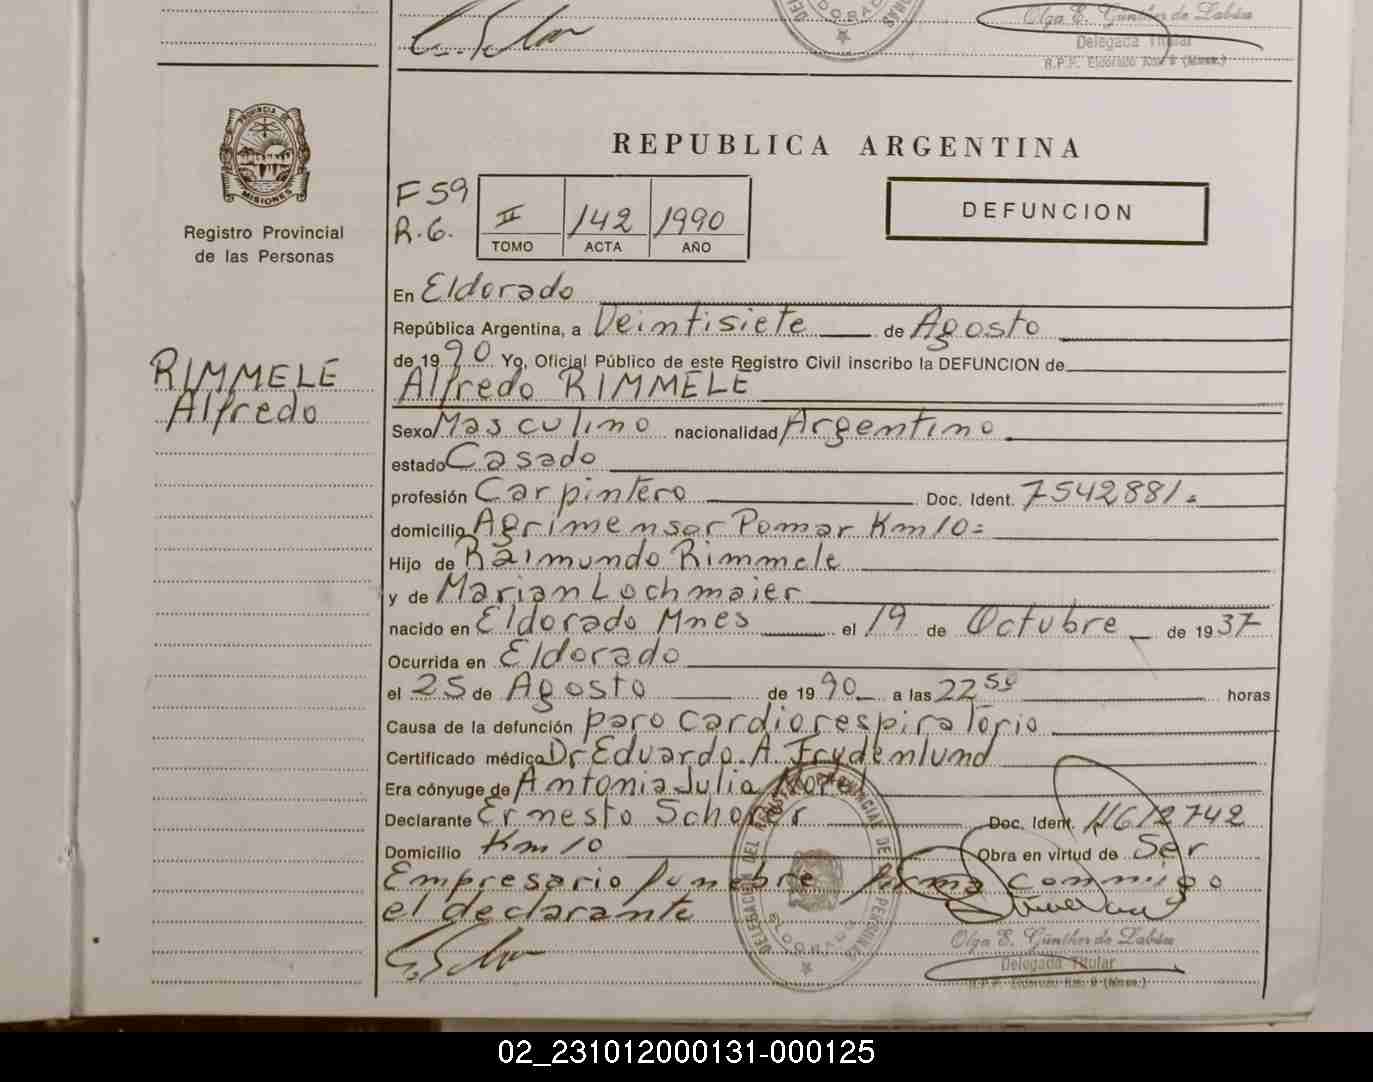 Olga E. Günther de Labán
Delegada Titular
R.P.P. Eldorado Km 9 (Mnes.)
PROVINCIA DE
MISIONES
Registro Provincial
de las Personas
RIMMELE
Alfredo
REPUBLICA ARGENTINA
F 59
R.G.
II 142 1990
TOMO ACTA AÑO
DEFUNCION
En Eldorado
República Argentina, a Veintisiete de Agosto
de 1990 Yo, Oficial Público de este Registro Civil inscribo la DEFUNCION de
Alfredo RIMMELE
Sexo Masculino nacionalidad Argentino
estado Casado
profesión Carpintero Doc. Ident. 7542881.=
domicilio Agrimensor Pomar Km 10=
Hijo de Raimundo Rimmele
y de Marian Lochmaier
nacido en Eldorado Mnes el 19 de Octubre de 1937
Ocurrida en Eldorado
el 25 de Agosto de 1990 a las 22 50 horas
Causa de la defunción paro cardiorespiratorio
Certificado médico Dr Eduardo A. Frydenlund
Era cónyuge de Antonia Julia Morel
Declarante Ernesto Schorer Doc. Ident. 11612742
Domicilio Km 10 Obra en virtud de Ser
Empresario funebre firma conmigo
el declarante
Olga E. Günther de Labán
Delegada Titular
R.P.P. Eldorado Km 9 (Mnes.)
02_231012000131-000125